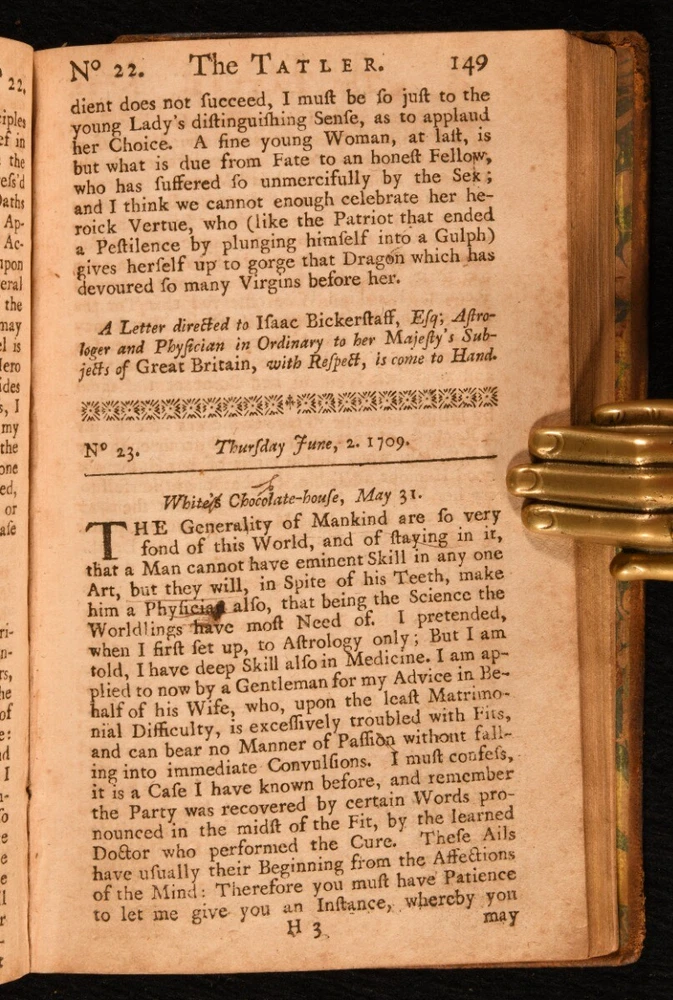 Nº 22. The TATLER. 149
dient does not ſucceed, I muſt be ſo juſt to the
young Lady's diſtinguiſhing Senſe, as to applaud
her Choice. A fine young Woman, at laſt, is
but what is due from Fate to an honeſt Fellow,
who has ſuffered ſo unmercifully by the Sex;
and I think we cannot enough celebrate her he-
roick Vertue, who (like the Patriot that ended
a Peſtilence by plunging himſelf into a Gulph)
gives herſelf up to gorge that Dragon which has
devoured ſo many Virgins before her.
A Letter directed to Iſaac Bickerſtaff, Eſq; Aſtro-
loger and Phyſician in Ordinary to her Majeſty's Sub-
jects of Great Britain, with Reſpect, is come to Hand.
Nº 23. Thurſday June, 2. 1709.
White's Chocolate-houſe, May 31.
THE Generality of Mankind are ſo very
fond of this World, and of ſtaying in it,
that a Man cannot have eminent Skill in any one
Art, but they will, in Spite of his Teeth, make
him a Phyſician alſo, that being the Science the
Worldlings have moſt Need of. I pretended,
when I firſt ſet up, to Aſtrology only; But I am
told, I have deep Skill alſo in Medicine. I am ap-
plied to now by a Gentleman for my Advice in Be-
half of his Wife, who, upon the leaſt Matrimo-
nial Difficulty, is exceſſively troubled with Fits,
and can bear no Manner of Paſſion without fall-
ing into immediate Convulſions. I muſt confeſs,
it is a Caſe I have known before, and remember
the Party was recovered by certain Words pro-
nounced in the midſt of the Fit, by the learned
Doctor who performed the Cure. Theſe Ails
have uſually their Beginning from the Affections
of the Mind: Therefore you muſt have Patience
to let me give you an Inſtance, whereby you
H 3 may